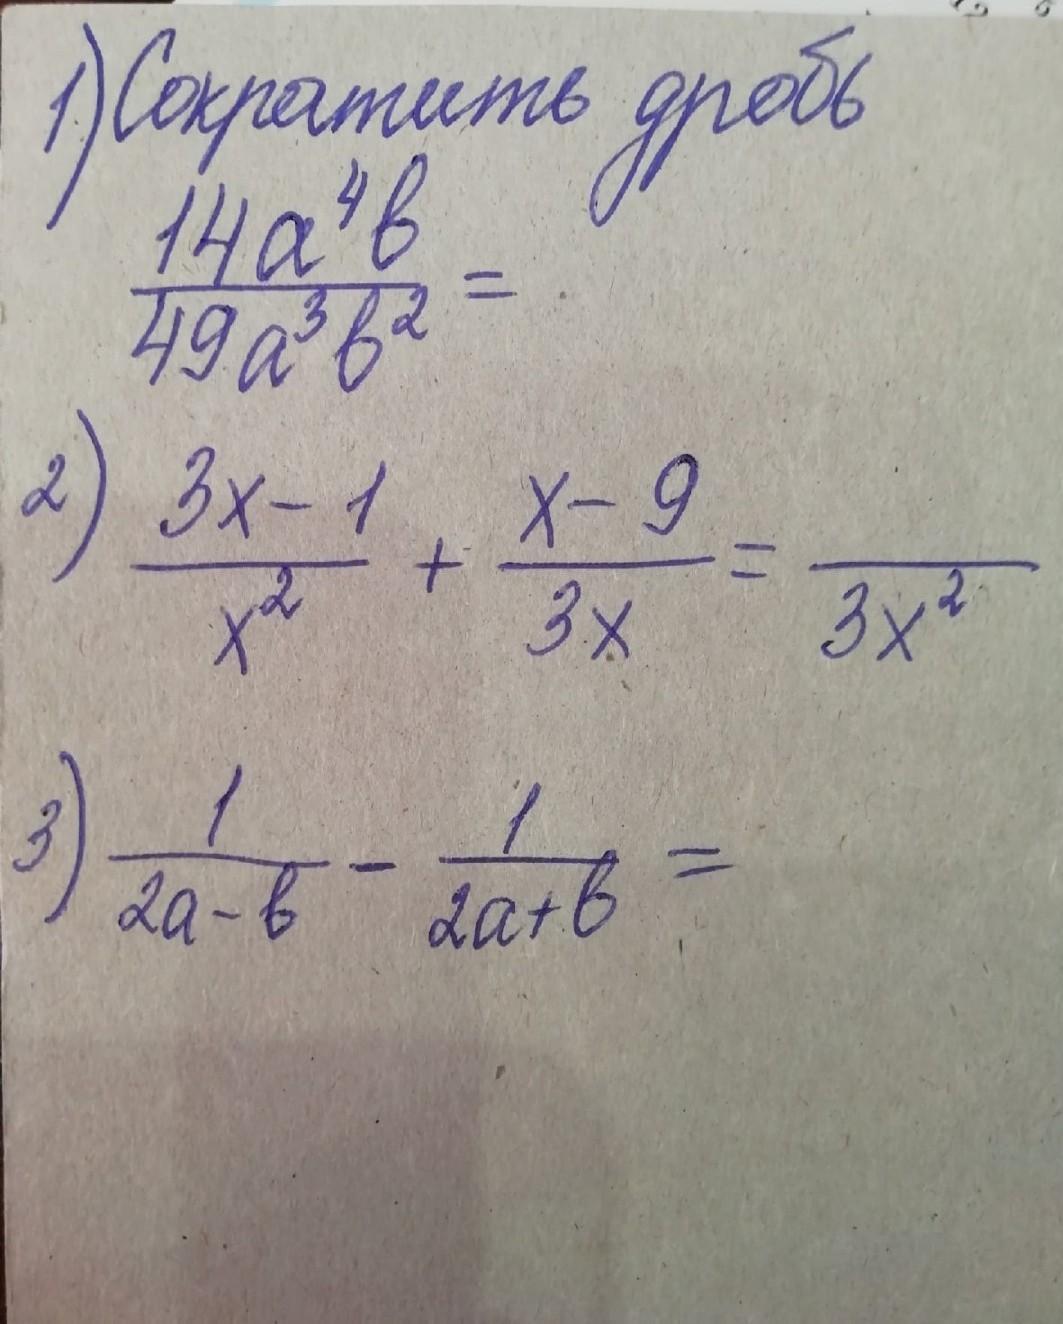 1) Сократить дробь
14a⁴b
49a³b² =
2) 3x-1 + x-9 =
x² 3x 3x²
3) 1 - 1 =
2a-b 2a+b